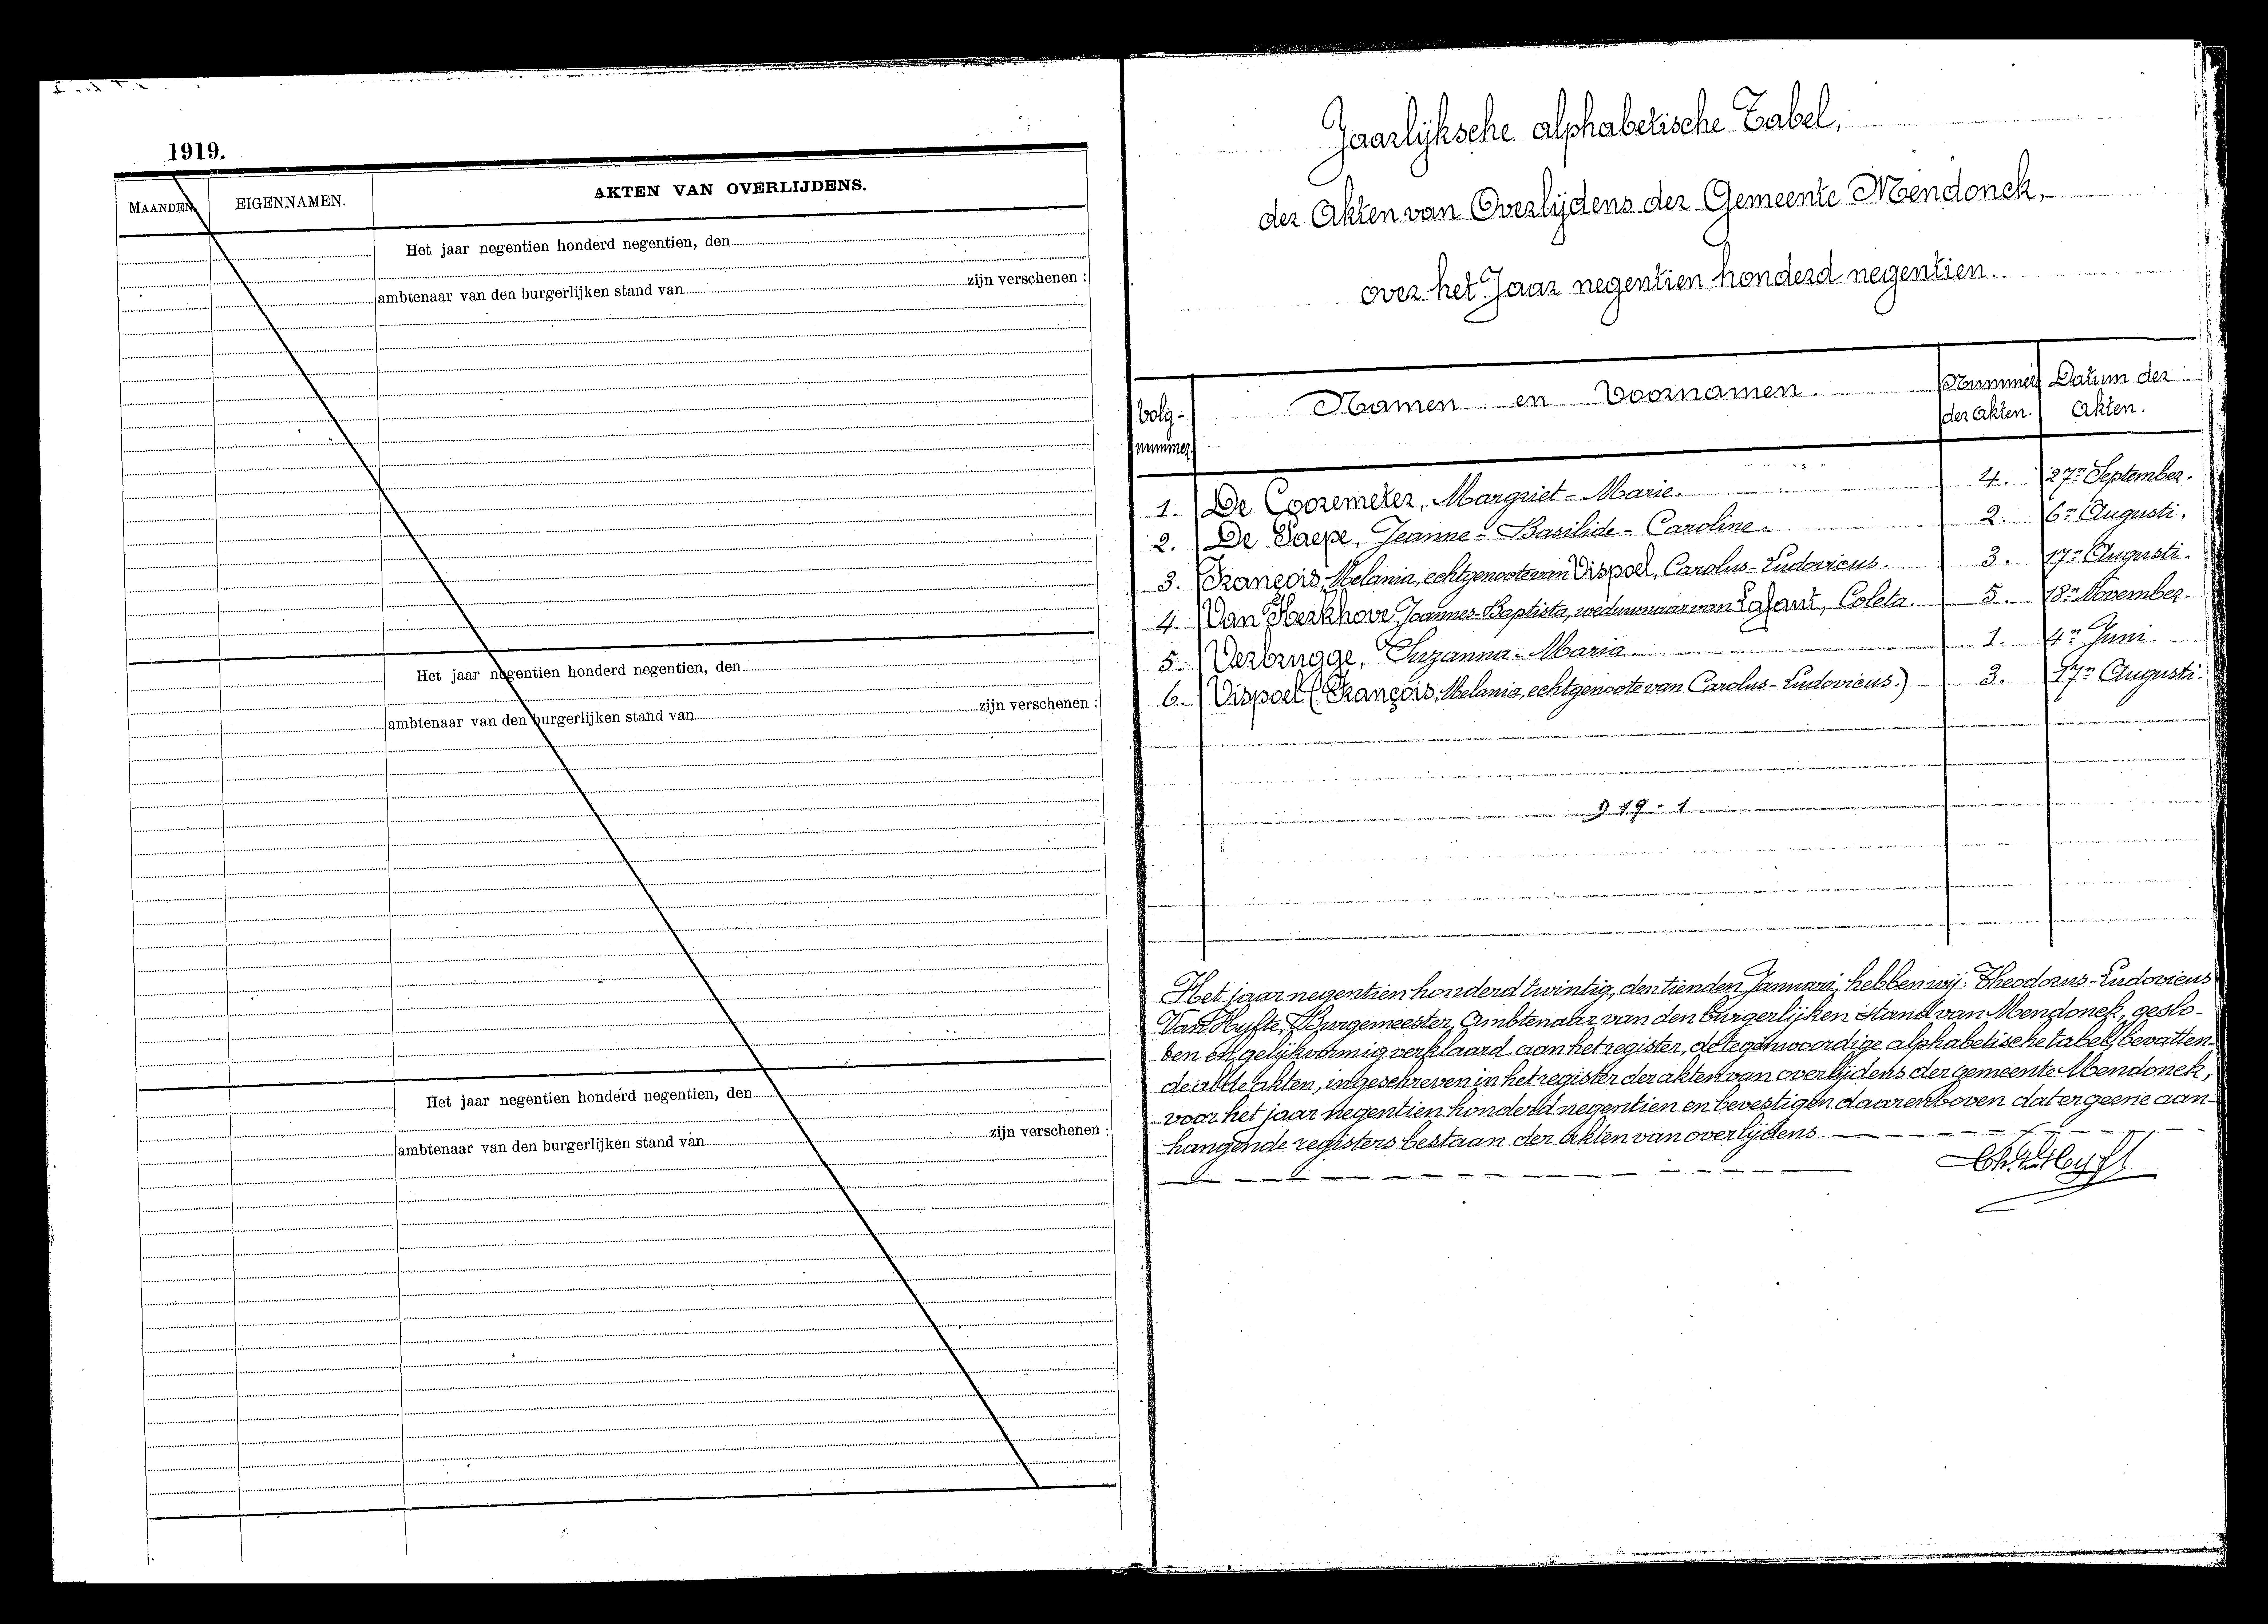 1919.
MAANDEN. EIGENNAMEN. AKTEN VAN OVERLIJDENS.
Het jaar negentien honderd negentien, den
zijn verschenen :
ambtenaar van den burgerlijken stand van
Het jaar negentien honderd negentien, den
zijn verschenen :
ambtenaar van den burgerlijken stand van
Het jaar negentien honderd negentien, den
zijn verschenen :
ambtenaar van den burgerlijken stand van
Jaarlijksche alphabetische Tabel,
der Akten van Overlijdens der Gemeente Mendonck,
over het Jaar negentien honderd negentien.
Volg-nummer. Namen en Voornamen. Nummer der Akten. Datum der Akten.
1. De Cooremeter, Margriet-Marie. 4. 27n September.
2. De Paepe, Jeanne-Basilide-Caroline. 2. 6n Augusti.
3. François, Melania, echtgenoote van Vispoel, Carolus-Ludovicus. 3. 17n Augusti.
4. Van Kerkhove, Joannes-Baptista, weduwnaar van Lafaut, Coleta. 5. 18n November.
5. Verbrugge, Suzanna-Maria. 1. 4n Juni.
6. Vispoel (François, Melania, echtgenoote van Carolus-Ludovicus.) 3. 17n Augusti.
919-1
Het jaar negentien honderd twintig, den tienden Januari, hebben wij: Theodorus-Ludovicus
Van Hyfte, Burgemeester, Ambtenaar van den burgerlijken stand van Mendonck, geslo-
ten en gelijkvormig verklaard aan het register, de tegenwoordige alphabetische tabel, bevatten-
de al de akten, ingeschreven in het register der akten van overlijdens der gemeente Mendonck,
voor het jaar negentien honderd negentien en bevestigen daarenboven dat er geene aan-
hangende registers bestaan der akten van overlijdens.